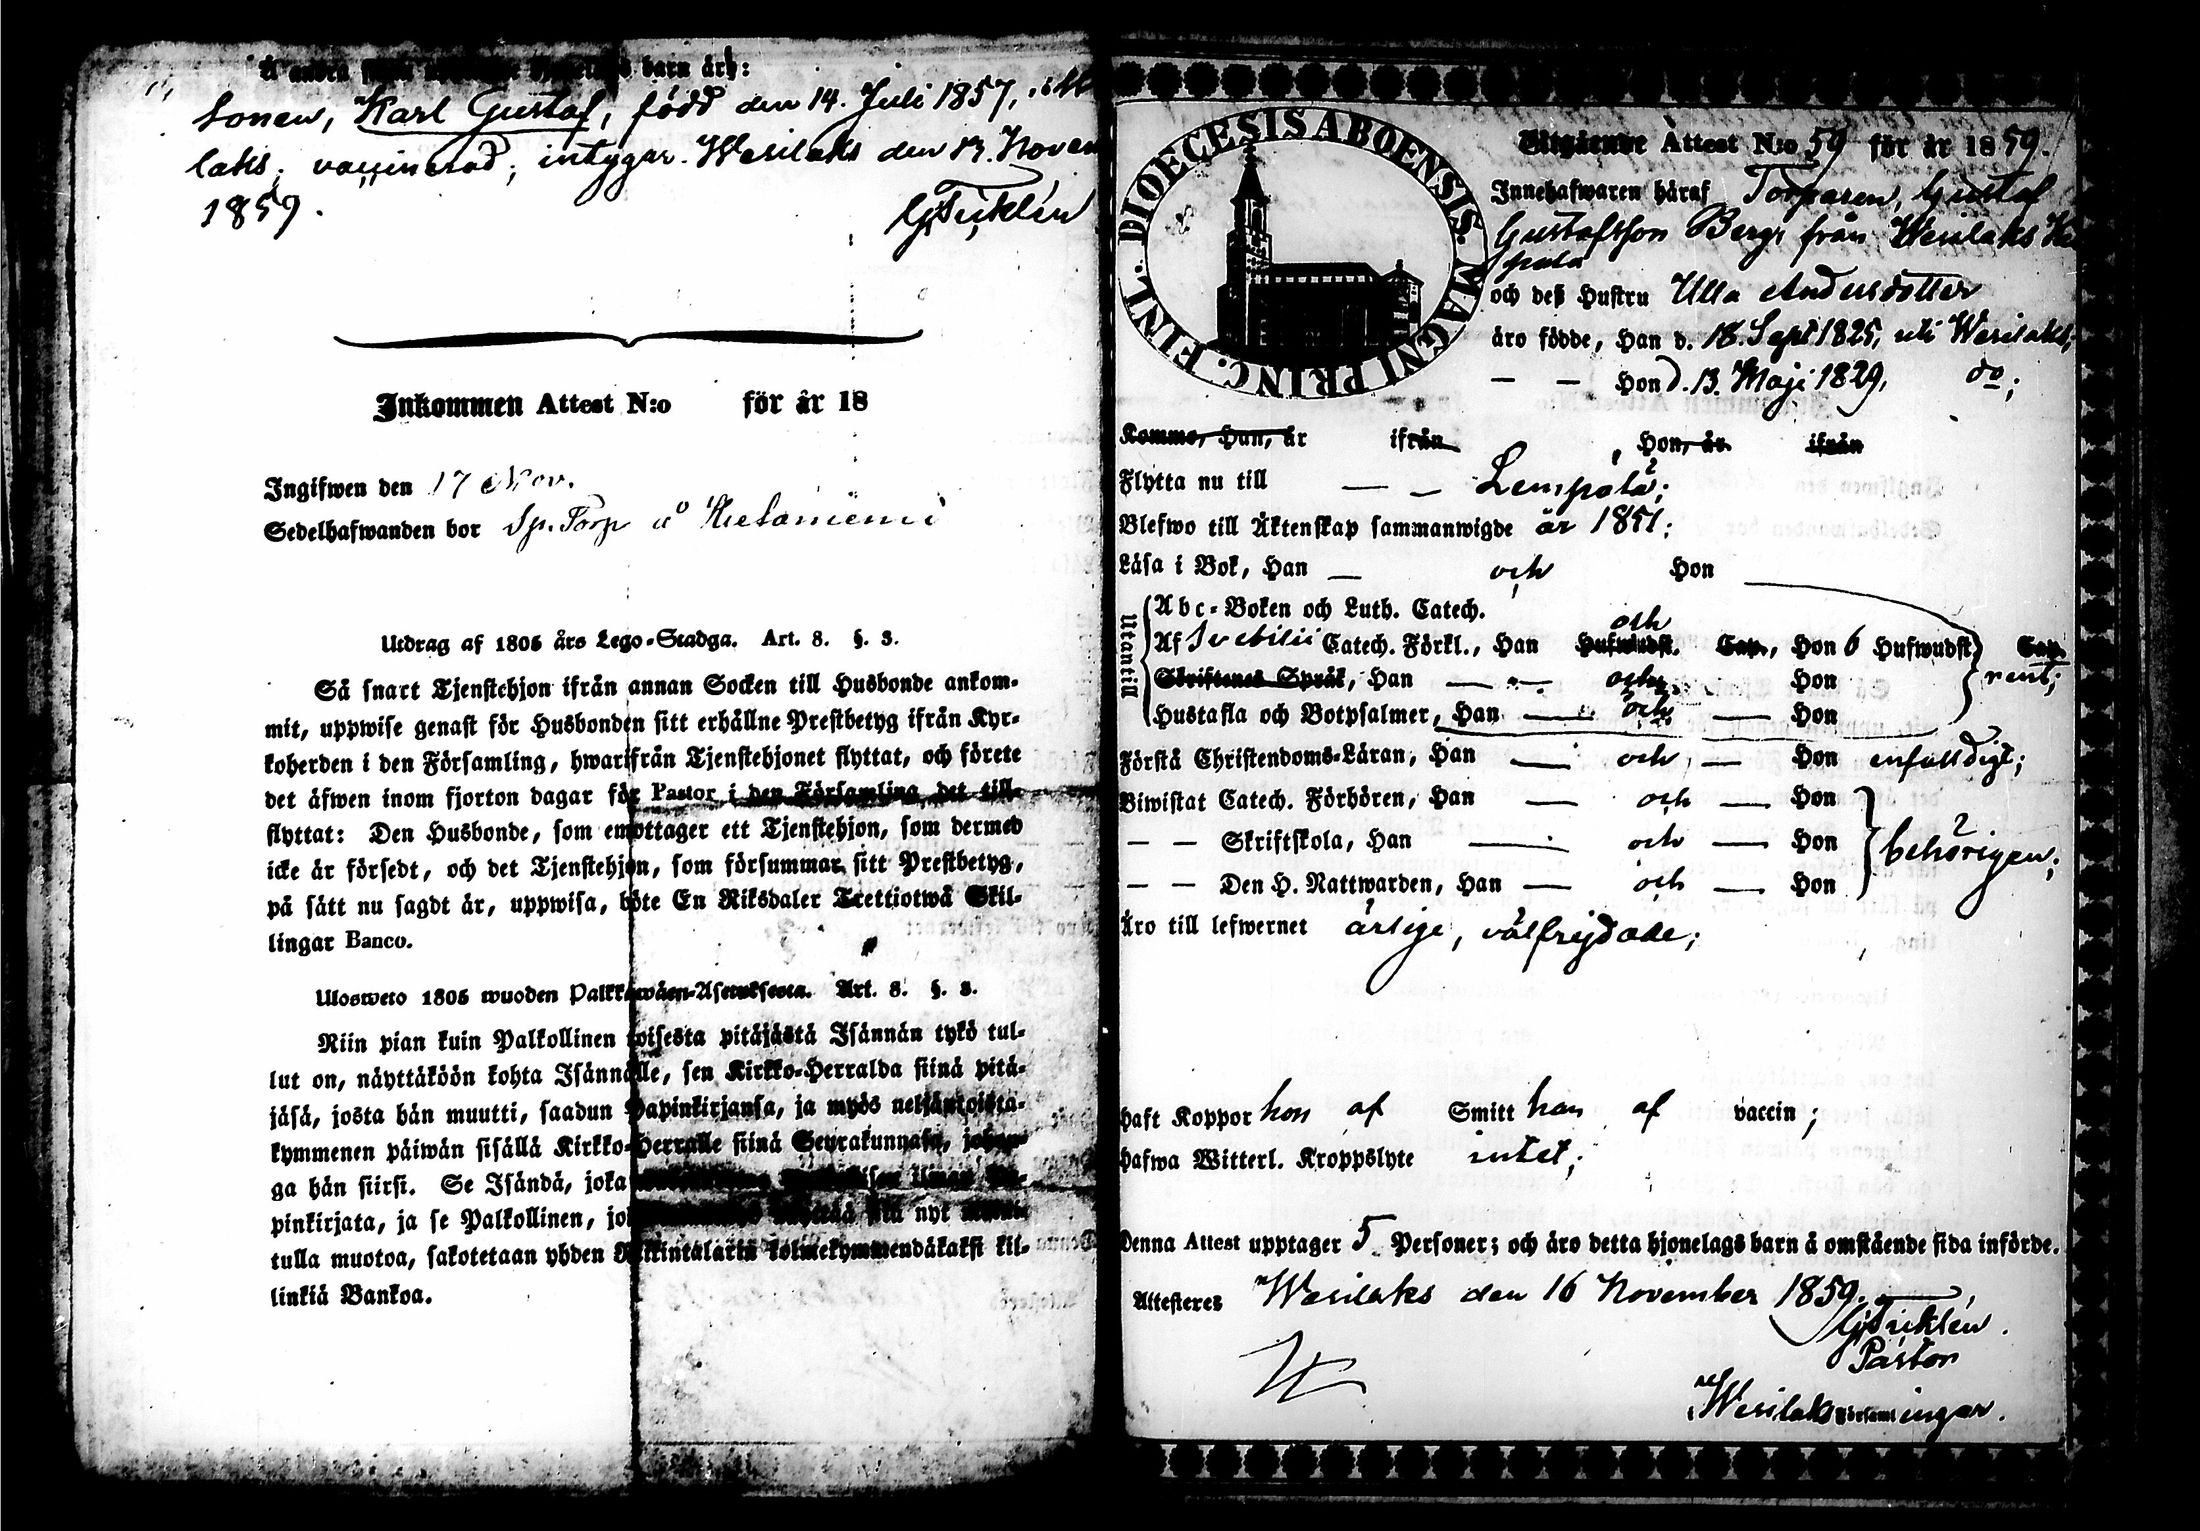 barn äro:
sonen, Karl Gustaf, född den 14. Juli 1857,
laks, vaccinerad; intygar. Wesilaks den 17. Novem
1859.
GTicklén
Inkommen Attest N:o för år 18
Ingifwen den 17 Nov.
Sedelhafwanden bor Sp. Torp å Hietaniemi
Utdrag af 1805 års Lego-Stadga. Art. 8. §. 3.
Så snart Tjenstehjon ifrån annan Socken till Husbonde ankom-
mit, uppwise genast för Husbonden sitt erhållne Prestbetyg ifrån Kyr-
koherden i den Församling, hwarifrån Tjenstehjonet flyttat, och förete
det äfwen inom fjorton dagar för Pastor i den Församling det till-
flyttat: Den Husbonde, som emottager ett Tjenstehjon, som dermed
icke är försedt, och det Tjenstehjon, som försummar sitt Prestbetyg,
på sätt nu sagdt är, uppwisa, böte En Riksdaler Trettiotwå Skil-
lingar Banco.
Ulosweto 1805 wuoden Palkkawäen-Asetuksesta. Art. 8. §. 3.
Niin pian kuin Palkollinen toisesta pitäjästä Isännän tykö tul-
lut on, näyttäköön kohta Isännälle, sen Kirkko-Herralda siinä pitä-
jäsä, josta hän muutti, saadun Papinkirjansa, ja myös neljäntoista-
kymmenen päiwän sisällä Kirkko-Herralle siinä Seurakunnasa, johon-
ga hän siirsi. Se Isändä, joka ilman Pa-
pinkirjata, ja se Palkollinen, nyt
tulla muotoa, sakotetaan yhden Rikkintalarin kolmekymmendäkaksi kil-
linkiä Bankoa.
DIOECESIS ABOENSIS. MAGNI PRINC. FINL.
Utgående Attest N:o 59 för år 1859.
Innehafwaren häraf Torparen, Gustaf
Gustafsson Berg, från Wesilaks
pala
och deß Hustru Ulla Andersdotter
äro födde, Han d. 18. Sept 1825, uti Wesilaks;
— — Hon d. 13. Maji 1829, do;
Komme, Han, år ifrån , Hon, år ifrån
Flytta nu till — — Lempälä;
Blefwo till Äktenskap sammanwigde år 1851;
Läsa i Bok, Han — och Hon
Utantill
Abc-Boken och Luth. Catech.
och
Af Svebilii Catech. Förkl., Han Hufwudst. Cap., Hon 6 Hufwudst Cap.
rent;
Skriftenes Språk, Han — — och Hon
Hustafla och Botpsalmer, Han — och — Hon
Förstå Christendoms-Läran, Han — och — Hon enfalldigt;
Biwistat Catech. Förhören, Han — och — Hon
— — Skriftskola, Han — och — Hon
behörigen;
— — Den H. Nattwarden, Han — och — Hon
Äro till lefwernet ärlige, välfrejdade;
Haft Koppor hon af Smitt han af vaccin;
Hafwa Witterl. Kroppslyte intet;
Denna Attest upptager 5 Personer; och äro detta hjonelags barn å omstående sida införde.
Attesteres Wesilaks den 16 November 1859.
GTicklén.
Pastor
Wesilaks Församlingar.